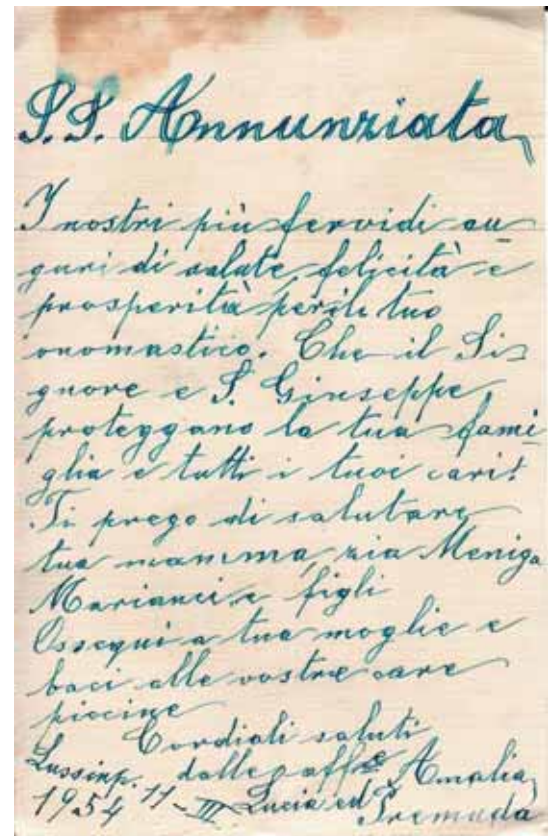 S.S. Annunziata
I nostri più fervidi au-
guri di salute, felicità e
prosperità per il tuo
onomastico. Che il Si-
gnore e S. Giuseppe
proteggano la tua fami-
glia e tutti i tuoi cari!
Ti prego di salutare
tua mamma, zia Meniga
Marianci, e figli
Ossequi a tua moglie e
baci alle vostre care
piccine
Cordiali saluti
dalle aff.e Amalia,
Lussinp. 11-III Lucia ed
1954 Premuda